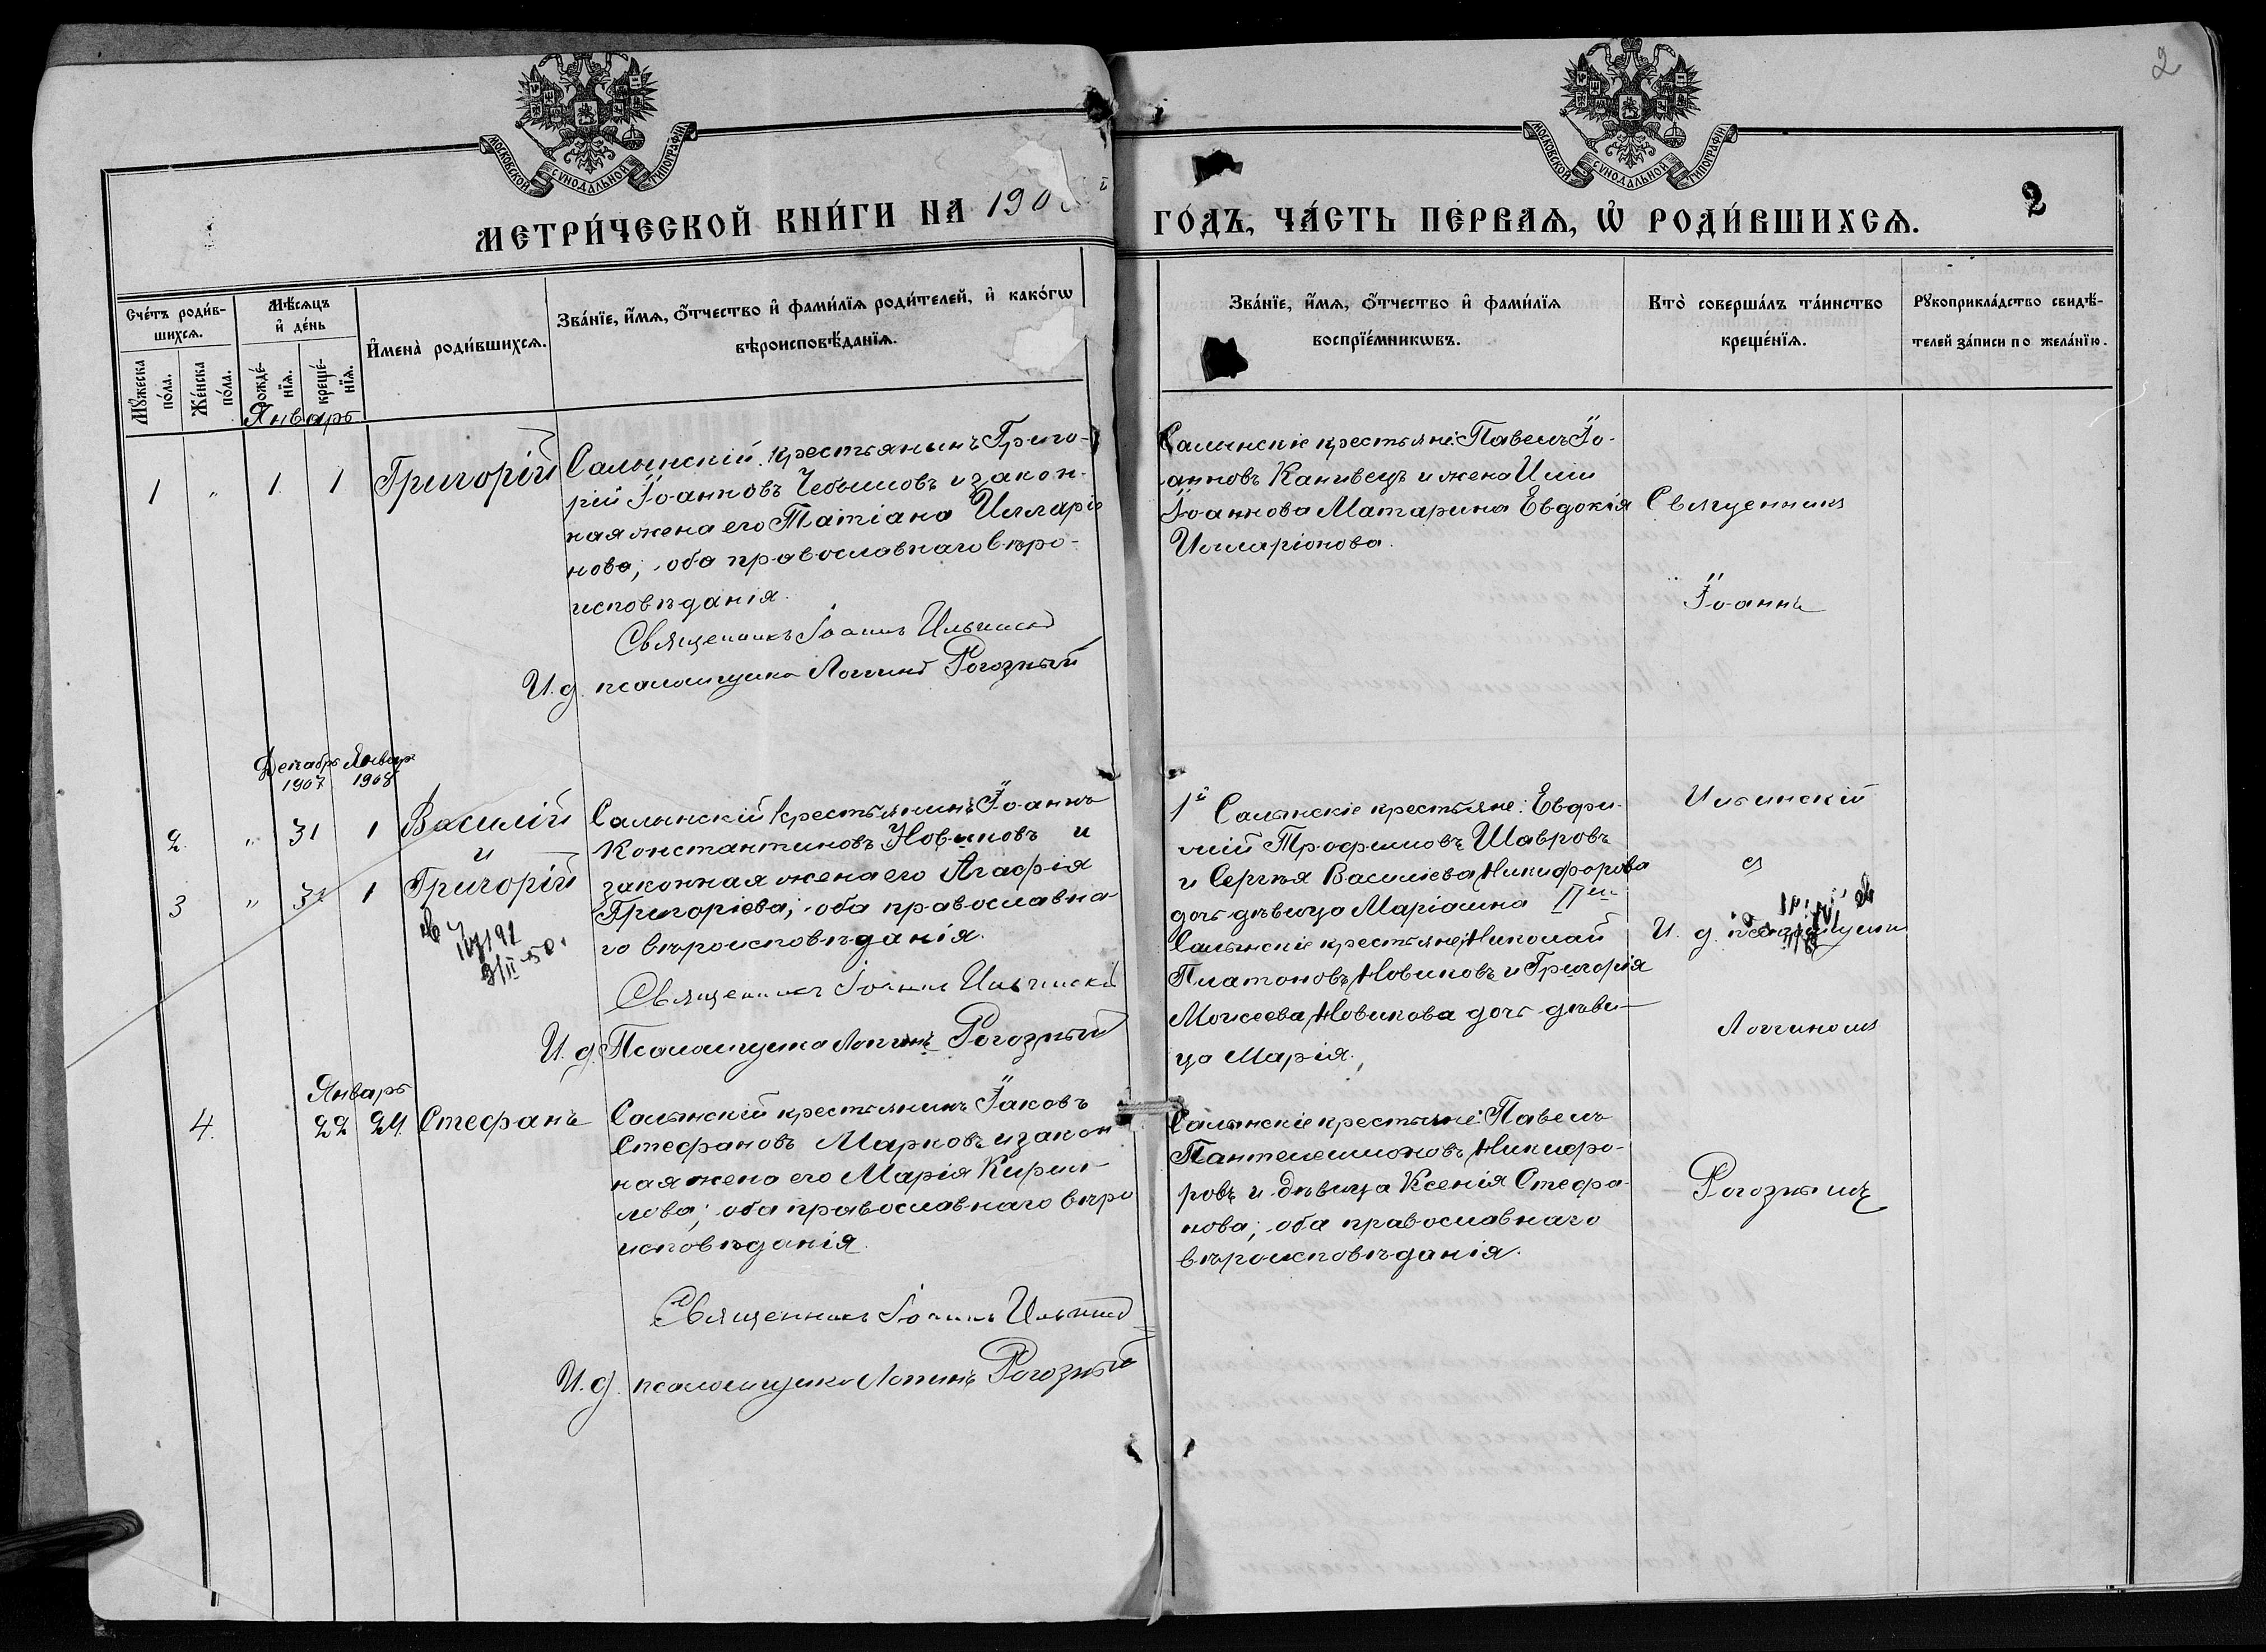 2
МОСКОВСКОЙ СѴНОДАЛЬНОЙ ТИПОГРАФІИ
МОСКОВСКОЙ СѴНОДАЛЬНОЙ ТИПОГРАФІИ
МЕТРИ́ЧЕСКОЙ КНИ́ГИ НА 190
ГО́ДЪ, ЧА́СТЬ ПЕ́РВАѦ, Ѡ҆ РОДИ́ВШИХСѦ.
2
Сче́тъ роди́в-
шихсѧ.
Мꙋ́жеска
по́ла.
Же́нска
по́ла.
Мѣ́сѧцъ
и҆ де́нь
рожде́-
нїѧ.
креще́-
нїѧ.
И҆мена̀ роди́вшихсѧ.
Зва́нїе, и҆́мѧ, ѻ҆́тчество и҆ фами́лїѧ роди́телей, и҆ како́гѡ
вѣроисповѣ́данїѧ.
Зва́нїе, и҆́мѧ, ѻ҆́тчество и҆ фами́лїѧ
воспрїе́мникѡвъ.
Кто̀ соверша́лъ та́инство
креще́нїѧ.
Рꙋкоприкла́дство свидѣ́-
телей за́писи по жела́нїю.
Январь
1 " 1 1 Григорій
Салынскій крестьянинъ Григо-
рій Іоанновъ Чебышовъ и закон-
ная жена его Татіана Илларіо
нова; оба православнаго вѣро-
исповѣданія.
Священникъ Іоаннъ Ильинскій
И. д. псаломщика Логгинъ Рогозный
Салынскіе крестьяне: Павелъ Іо-
анновъ Канивецъ и жена Иліи
Іоаннова Матарина Евдокія
Илларіонова.
Священникъ
Іоаннъ
Декабрь Январь
1907 1908
2. " 31 1 Василій
и
3 " 31 1 Григорій
Салынскій крестьянинъ Іоаннъ
Константиновъ Новиковъ и
законная жена его Агафія
Григоріева; оба православна-
го вѣроисповѣданія.
Священникъ Іоаннъ Ильинскій
И. д. Псаломщика Логгинъ Рогозный
1й Салынскіе крестьяне: Евфи-
мій Трофимовъ Шавровъ
и Сергѣя Василіева Никифорова
дочь дѣвица Маріамна
Салынскіе крестьяне: Николай
Платоновъ Новиковъ и Григорія
Моисеева Новикова дочь дѣви-
ца Марія.
Ильинскій
съ
И. д. псаломщика
Логгиномъ
Январь
4. 22 24 Стефанъ
Салынскій крестьянинъ Іаковъ
Стефановъ Марковъ и закон
ная жена его Марія Кирил-
лова; оба православнаго вѣро
исповѣданія.
Священникъ Іоаннъ Ильинскій
И. д. псаломщика Логгинъ Рогозный
Салынскіе крестьяне: Павелъ
Пантелеимоновъ Никифо-
ровъ и дѣвица Ксенія Стефа-
нова; оба православнаго
вѣроисповѣданія.
Рогознымъ